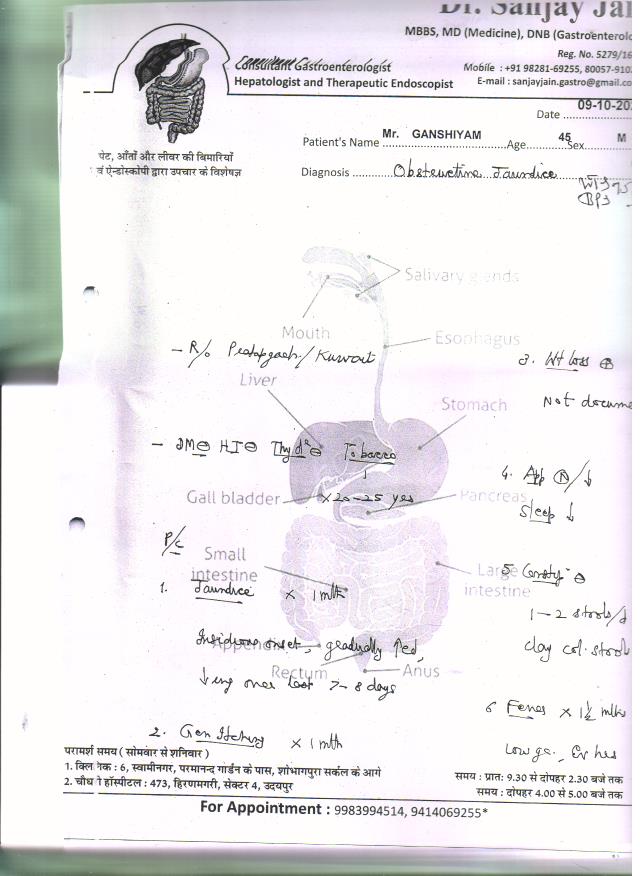 Dr. Sanjay Jai
MBBS, MD (Medicine), DNB (Gastroenterolo
Reg. No. 5279/16
Consultant Gastroenterologist
Mobile : +91 98281-69255, 80057-910
Hepatologist and Therapeutic Endoscopist
E-mail : sanjayjain.gastro@gmail.co
Date 09-10-20
Patient's Name Mr. GANSHIYAM Age 45 Sex M
पेट, आँतों और लीवर की बिमारियों
वं ऐन्डोस्कोपी द्वारा उपचार के विशेषज्ञ
Diagnosis Obstructive Jaundice
Salivary glands
Mouth
Esophagus
- R/o Pratapgarh/Kuwait
3. Wt loss ⊕
Liver
Stomach
Not docume
- DM⊖ HT⊖ Thyd⊖ Tobacco
4. App Ⓝ/↓
Gall bladder
x 20-25 yrs
Pancreas
Sleep ↓
P/c
Small intestine
Large intestine
5 Constip ⊖
1. Jaundice x 1 mth
1-2 stools/d
Insidious onset, gradually ↑ed,
clay col. stool
Appendix
Rectum
Anus
↓ing over last 7-8 days
6 Fever x 1½ mth
2. Gen Itching x 1 mth
Low gr.
परामर्श समय ( सोमवार से शनिवार )
1. क्लिनिक : 6, स्वामीनगर, परमानन्द गार्डन के पास, शोभागपुरा सर्कल के आगे
समय : प्रात: 9.30 से दोपहर 2.30 बजे तक
2. चौधरी हॉस्पीटल : 473, हिरणमगरी, सेक्टर 4, उदयपुर
समय : दोपहर 4.00 से 5.00 बजे तक
For Appointment : 9983994514, 9414069255*